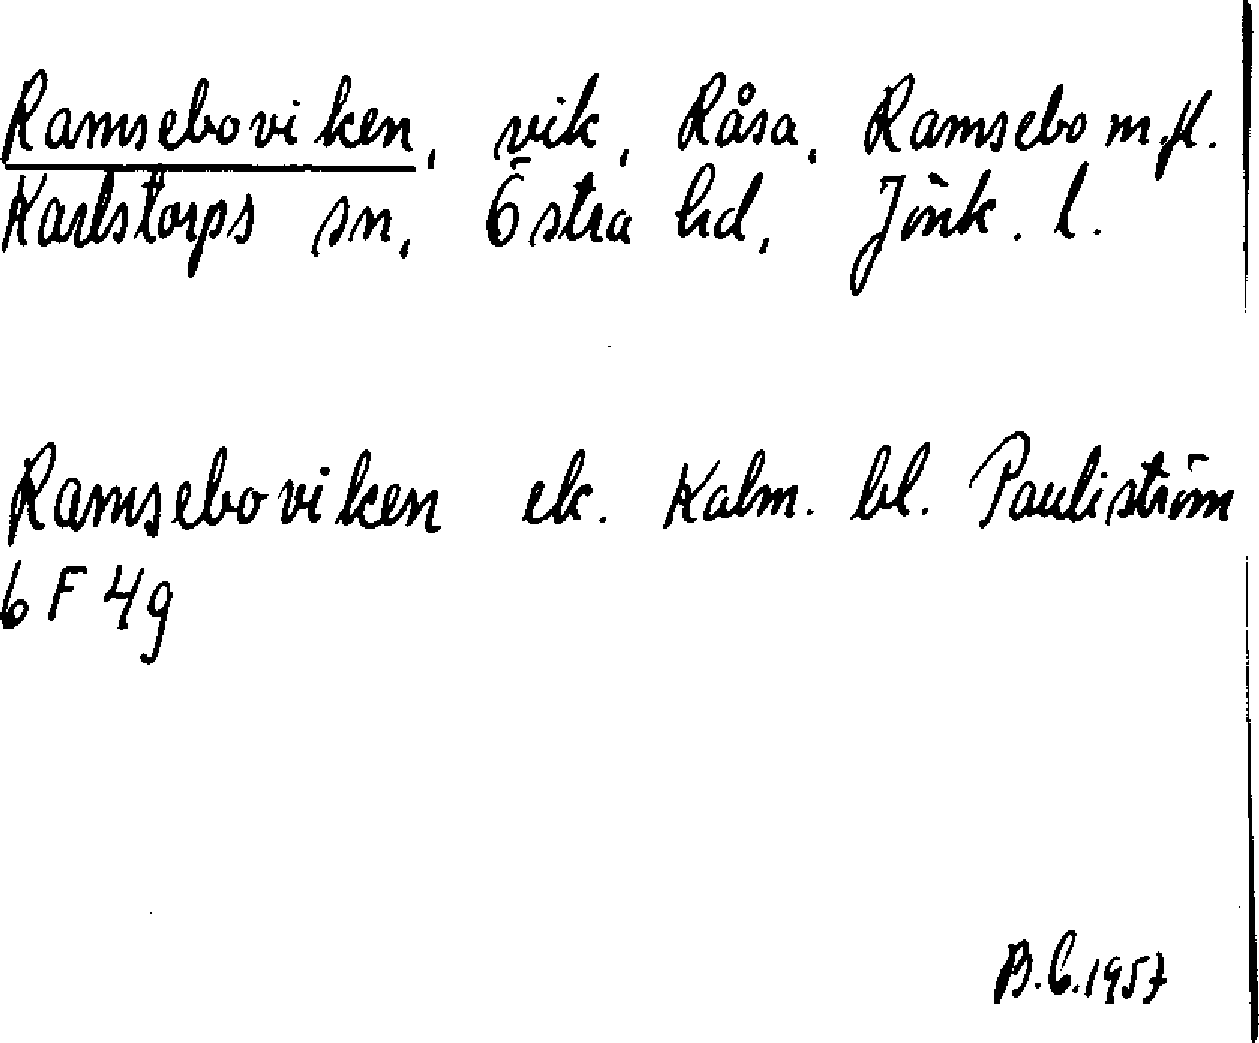 Ramseboviken, vik, Råsa, Ramsebo m.fl.
Karlstorps sn, Östra hd, Jönk. l.
Ramseboviken ek. Kalm. bl. Pauliström
6 F 4g
B.C. 1957